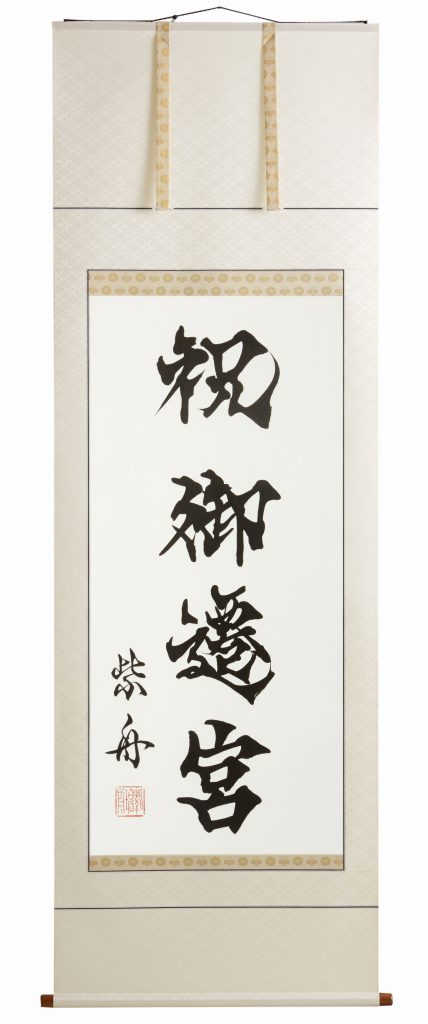 祝御遷宮
紫舟